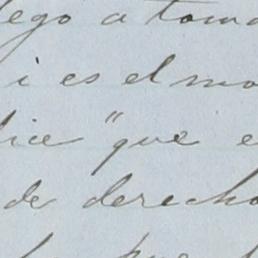 lego a toma
i es el mo
dice "que e
de derecho